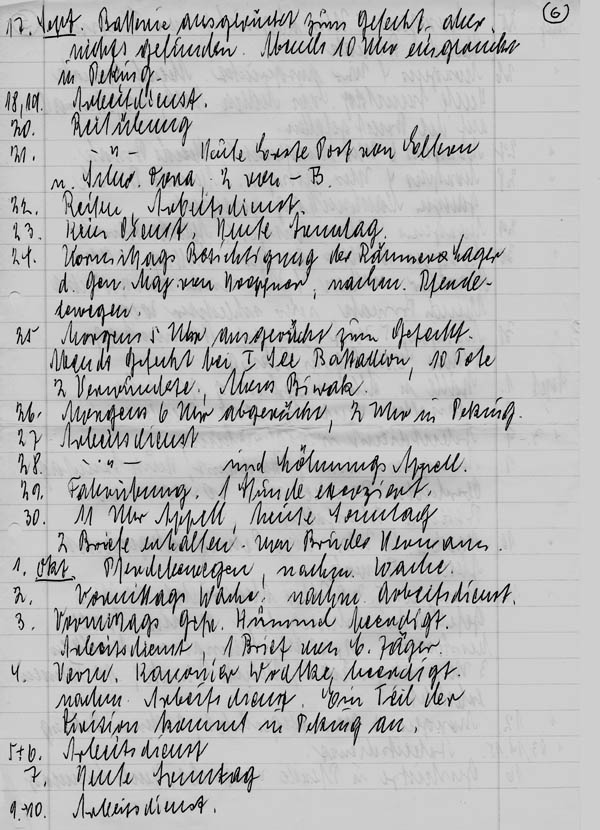 6
17. Sept. Batterie ausgerückt zum Gefecht, aber
nichts gefunden. Abends 10 Uhr eingerückt
in Peking.
18,19. Arbeitdienst.
20. Reitübung
21. -"- Heute Erste Post von Eltern
u. 2 von B.
22. Reiten, Arbeitsdienst
23. Kein Dienst, Heute Sonntag.
24. Vormittags Besichtigung der Lager
d. Gen. Maj von Hoepfner, nachm. Pferde-
bewegen.
25 Morgens 5 Uhr ausgerückt zum Gefecht.
Abends Gefecht bei I See Battallion, 10 Tote
2 Verwundete, Biwak.
26. Morgens 6 Uhr abgerückt, 2 Uhr in Peking.
27 Arbeitsdienst
28. -"- und Löhnungs Appell.
29. Fahrübung. 1 Stunde exerziert.
30. 11 Uhr Appell, heute Sonntag
2 Briefe erhalten von Bruder Hermann.
1. Okt. Pferdebewegen, nachm. Wache.
2. Vormittags Wache. nachm. Arbeitsdienst.
3. Vormittags Gefr. Hümmel beerdigt.
Arbeitsdienst, 1 Brief von E. Jäger.
4. Vorm. Kanonier Wratke beerdigt.
nachm. Arbeitsdienst. Ein Teil der
Division kommt in Peking an.
5+6. Arbeitsdienst
7. Heute Sonntag
9.+10. Arbeitsdienst.